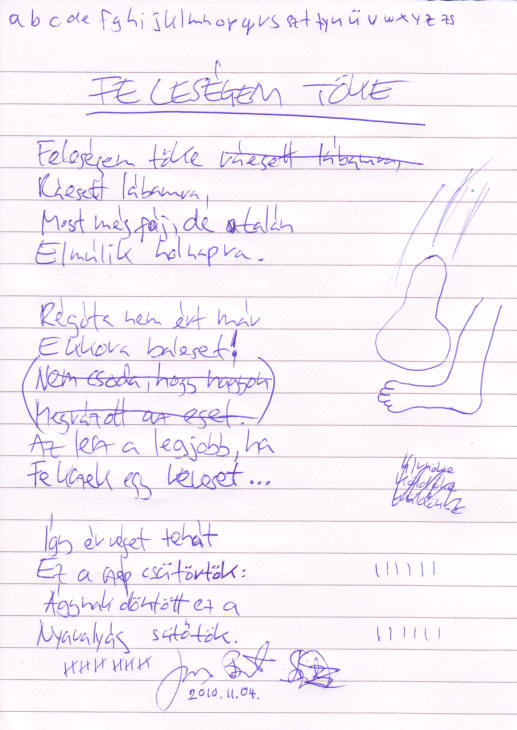 a b c d e f g h i j k l m n o p q r s sz t ty u ü v w x y z zs
FELESÉGEM TÖKE
Feleségem töke ráesett lábamra,
Ráesett lábamra,
Most még fáj, de talán
Elmúlik holnapra.
Régóta nem ért már
Ekkora baleset!
Nem csoda, hogy nagyon
Megrázott az eset.
Az lesz a legjobb, ha
Felkérek egy keleset...
Így ér véget tehát
Ez a szép csütörtök:
Ágynak döntött ez a
Nyavalyás sütőtök.
2010.11.04.